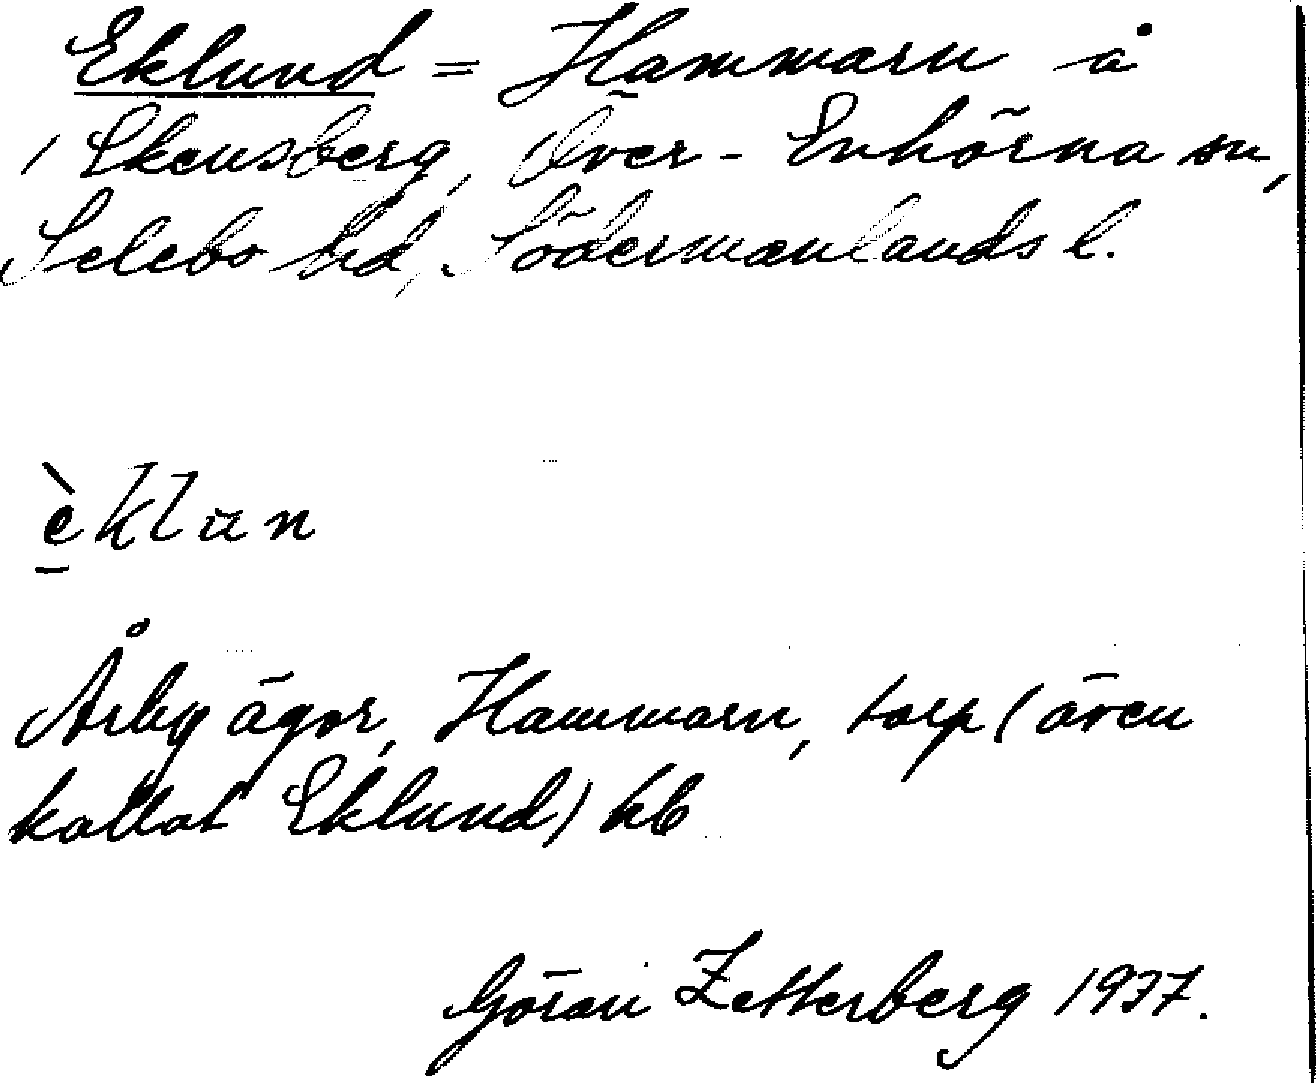 Eklund = Hammarn å
/ Ekensberg, Över-Enhörna sn,
Selebo hd, Södermanlands l.
èklun
Årby ägor, Hammarn, torp (även
kallat Eklund) kb
Göran Zetterberg 1937.